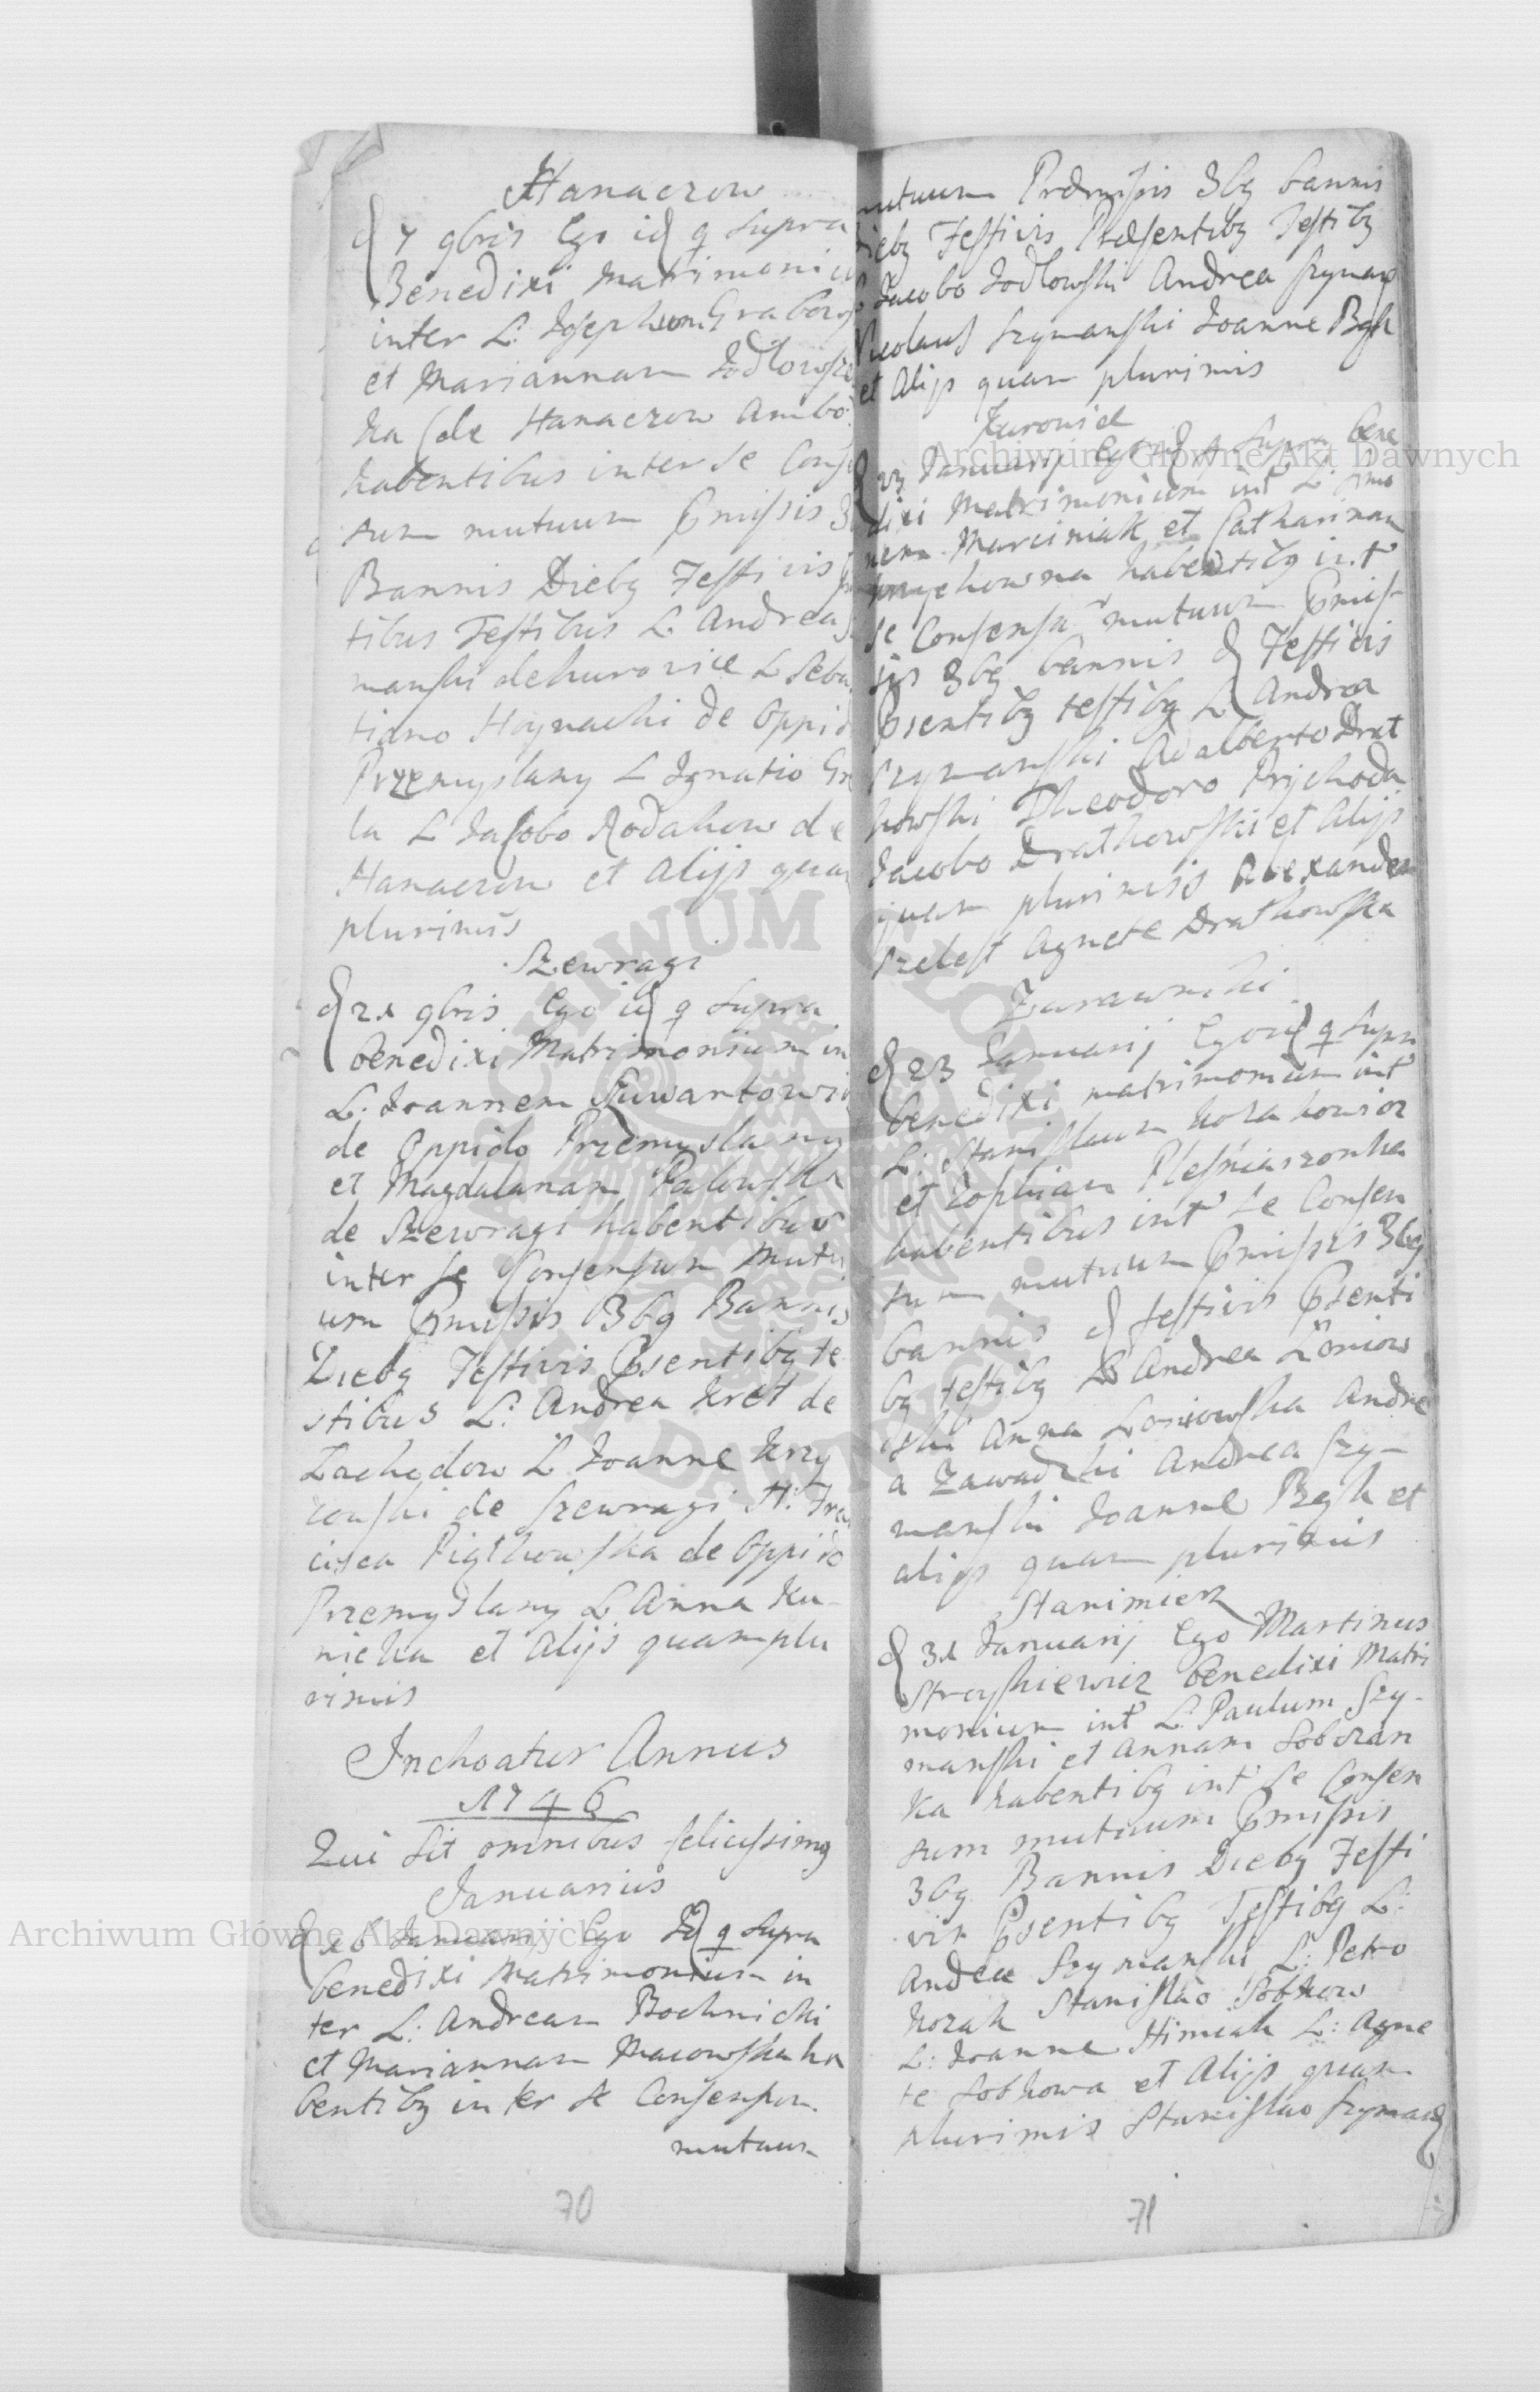 Hanaczow
d 7 9bris Ego id q supra
Benedixi Matrimoniu
inter L: Josephum Grabows
et Mariannam Jodłowsz
ka de Hanaczow Ambo
habentibus inter se Cons
sum mutuum Pmissis 3
Bannis Dieby Festivis
tibus Testibus L. Andrea
manski de L Seba
tiano Hoynacki de Oppid
Przemyslany L Ignatio Gr
la L Jacobo Rodakow de
Hanaczow et Alijs qua
plurimis
Szewragi
d 21 9bris Ego id q supra
benedixi Matrimonium in
L: Joannem
de Oppido Przemyslany
et Magdalanam
de Szewragi habentibus
inter se Consensum Mutu
um Pmissis 3by Bannis
Dieby Festivis Psentiby te
stibus L: Andrea Kret de
Lachodow L Joanne Krzy
de Szewragi Fra
cisca Piątkowska de Oppido
Przemyslany L Anna Ku-
nicka et Alijs quam plu
rimis
Inchoatur Annus
1746
Qui sit omnibus felicissimq
Januarius
d 16 Januarij Ego Id q supra
benedixi Matrimonium in
ter L: Andream Bochnicki
et Mariannam Macowska ha
bentiby inter se Consensum
mutuum
mutuum Prdmissis 3by bannis
ieby Festivis Prdsentiby Testiby
Jacobo Jodłowski Andrea Szyman
icolaus Szymanski Joanne Bąk
et Alijs quam plurimis
23 Januarij Ego id q supra bene
dixi Matrimonium int L:
nem Marciniak et Catharinam
habentiby int
se Consensu mutuum Pmis-
sis 3by bannis d Festivis
Psentiby testiby L Andrea
Szymanski Adalberto Drat
kowski Theodoro Prijchoda
Jacobo Dratkowski et Alijs
quam plurimis Alexander
Agnete Dratkowska
d 23 Januarij Ego id q supra
benedixi matrimonium int
L: Stanislaum
et Zophiam Plesniaszonka
habentibus int se Consen
sum mutuum Pmissis 3by
bannis d festivis Psenti
by testiby L Andrea Łoniow
ski Anna Łoniowska Andre
a Zawadzki Andrea Szy-
manski Joanne Bąk et
alijs quam plurimis
Stanimierz
d 31 Januarij Ego Martinus
benedixi Matri
monium int L: Paulum Szy-
manski et Annam Sobczan
ka habentiby int se Consen
sum mutuum Pmissis
3by Bannis Dieby Festi
vis Psentiby Testiby L:
Andrea Szymanski L: Petro
Kozak Stanislao Sobkow
L: Joanne Himiak L: Agne
te Sobkowa et Alijs quam
plurimis Stanislao
70
71
Archiwum Główne Akt Dawnych
Archiwum Główne Akt Dawnych
ARCHIWUM GŁÓWNE AKT DAWNYCH